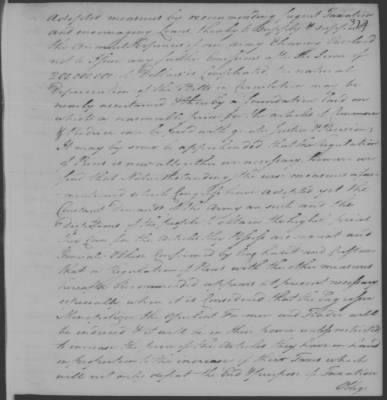 Adopted measures by recommending frequent Taxation
and encouraging Loans thereby to supply &
the Annual Expences of our Army & having declared
not to Issue any further Emissions after the Sum of
200,000,000 of Dollars is Compleated the natural
Depreciation of the Bills in Circulation may be
nearly ascertained & thereby a foundation laid on
which a reasonable price for the articles of Commerce
& Produce can be fixed with greater Justice & Precision;
It may by some be apprehended that the regulation
of Prices is now altogether unnecessary, however we
find that Notwithstanding the wise measures afore
mentioned which Congress have adopted yet the
Constant Demands of the Army are such and the
of the people to obtain the highest price
they can for the Articles they Possess are so great and
General & Often Confirmed by long habit and Custom
that a Regulation of Prices with the other measures
herewith Recommended appears at present necessary
especially when it is Considered that the Engrosser
Monopolizer the opulent Farmer and Trader will
be induced & it will be in their power unless restricted
to increase the prices of the Articles they have on hand
in proportion to the increase of their Taxes which
will not only defeat the End & purpose of Taxation
Oblige